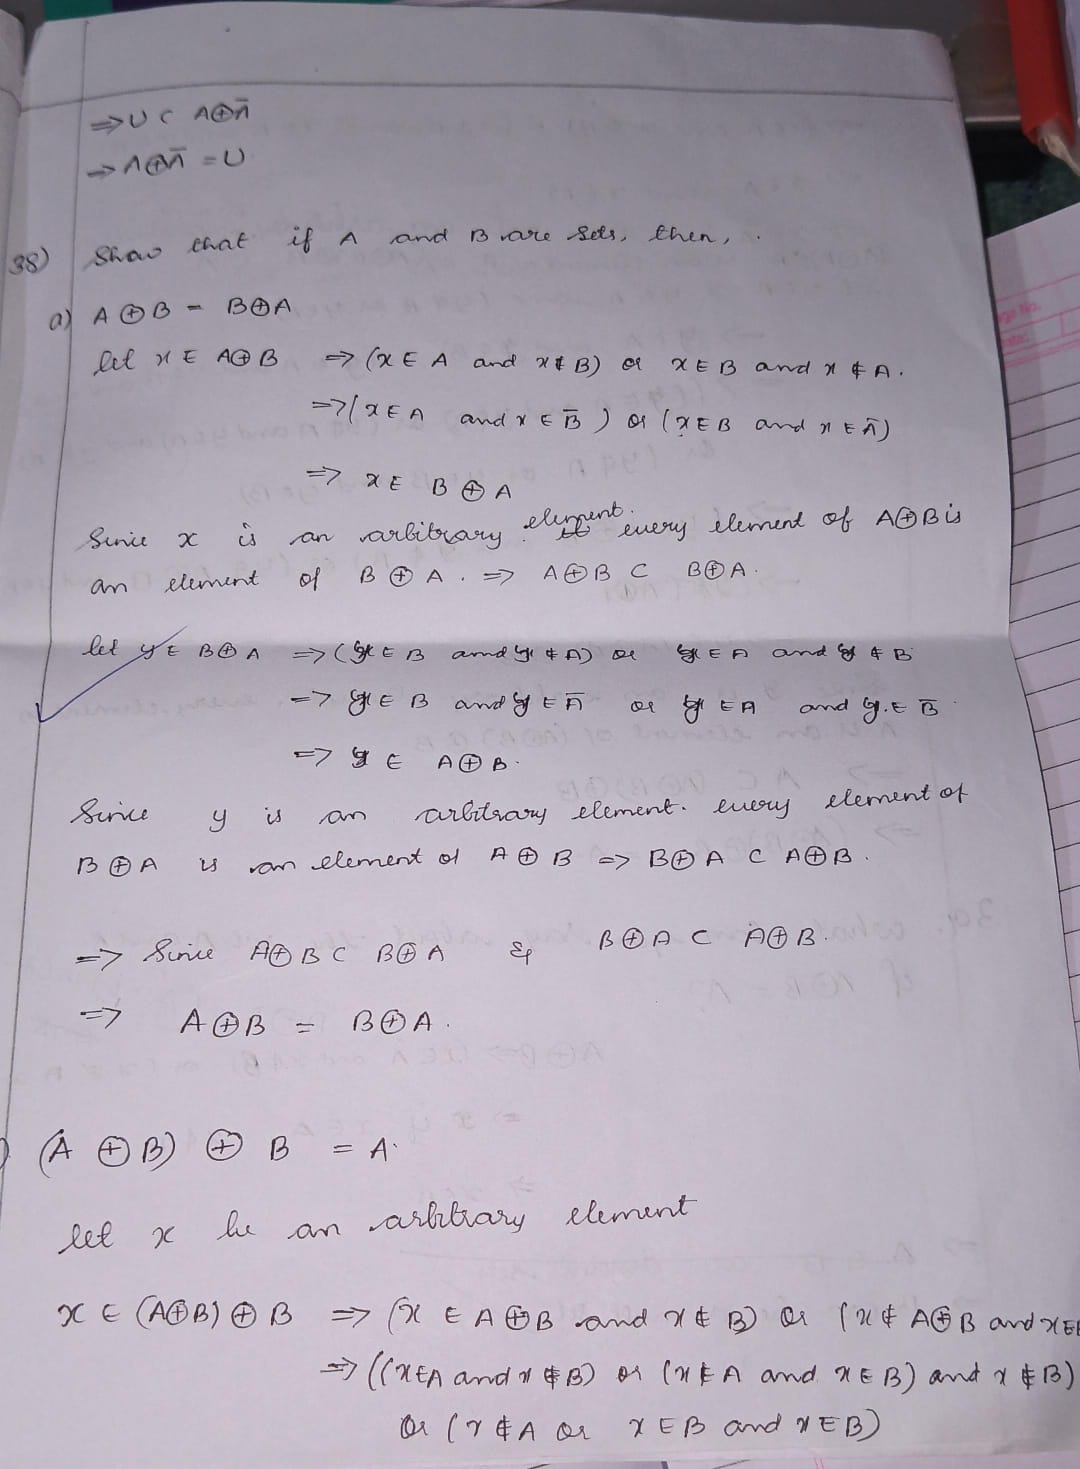 ⇒ U ⊂ A⊕Ā
⇒ A⊕Ā = U
38) Show that if A and B are Sets, then,
a) A ⊕ B = B⊕A
let x ∈ A⊕B ⇒ (x ∈ A and x ∉ B) or x ∈ B and x ∉ A.
⇒ (x ∈ A and x ∈ B̄) or (x ∈ B and x ∈ Ā)
⇒ x ∈ B ⊕ A
Since x is an arbitrary element. every element of A⊕B is
an element of B ⊕ A. ⇒ A⊕B ⊂ B⊕A.
let y ∈ B⊕A ⇒ (y ∈ B and y ∉ A) or y ∈ A and y ∉ B
⇒ y ∈ B and y ∈ Ā or y ∈ A and y ∈ B̄
⇒ y ∈ A⊕B.
Since y is an arbitrary element. every element of
B ⊕ A is an element of A ⊕ B ⇒ B⊕A ⊂ A⊕B.
⇒ Since A⊕B ⊂ B⊕A & B⊕A ⊂ A⊕B.
⇒ A⊕B = B⊕A.
(A ⊕ B) ⊕ B = A.
let x be an arbitrary element
x ∈ (A⊕B) ⊕ B ⇒ (x ∈ A⊕B and x ∉ B) or (x ∉ A⊕B and x ∈
⇒ ((x∈A and x ∉ B) or (x ∉ A and x ∈ B) and x ∉ B)
or (x ∉ A or x ∈ B and x ∈ B)